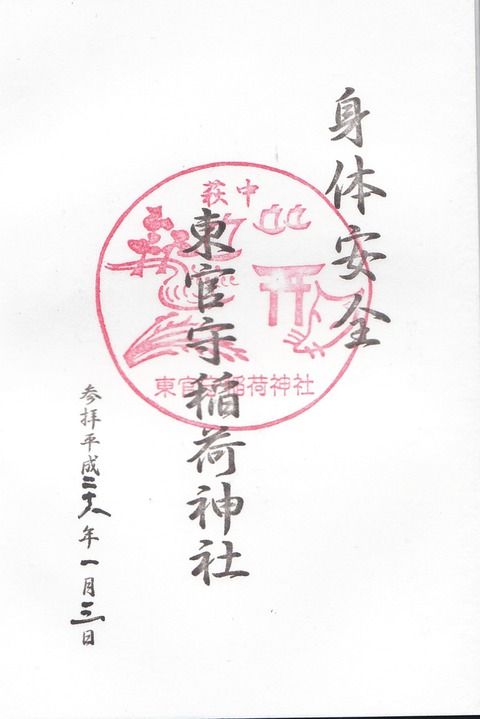 身体安全
萩中
東官守稲荷神社
東官守稲荷神社
参拝平成二十八年一月三日